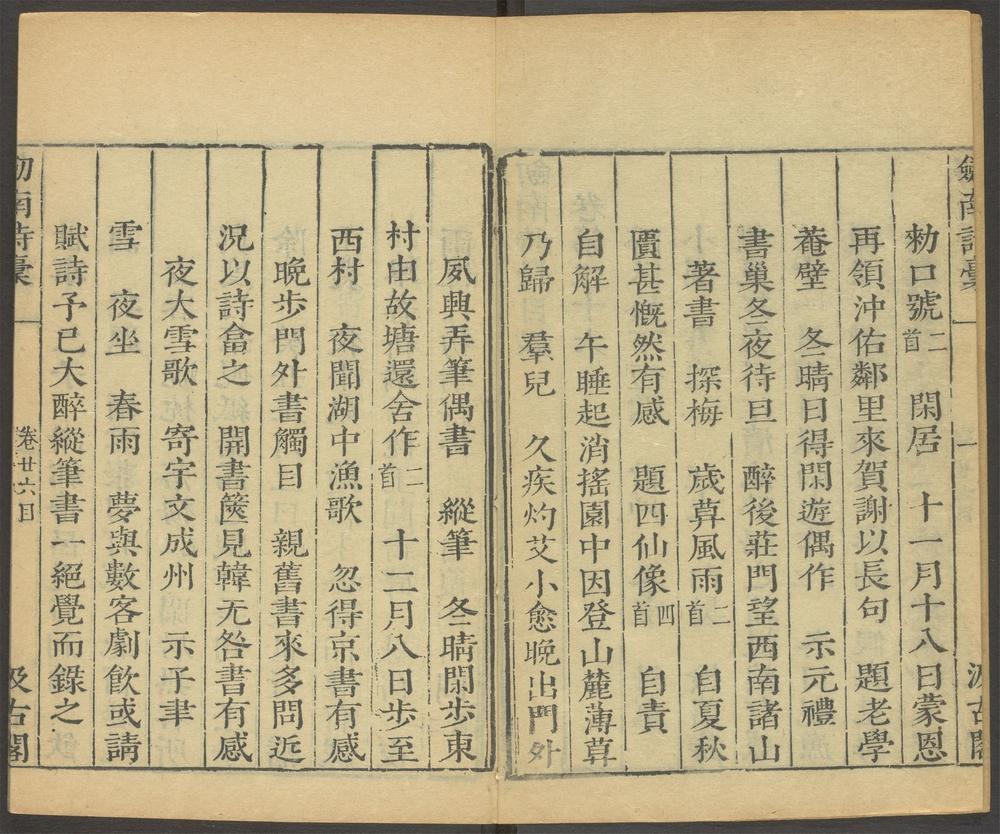 劒南詩稾
汲古閣
勑口號二首 閑居 十一月十八日蒙恩
再領沖佑鄰里來賀謝以長句 題老學
菴壁 冬晴日得閑遊偶作 示元禮
書巢冬夜待旦 醉後莊門望西南諸山
著書 探梅 歳莫風雨二首 自夏秋
匱甚慨然有感 題四仙像四首 自責
自解 午睡起消搖園中因登山麓薄莫
乃歸 羣兒 久疾灼艾小愈晚出門外
夙興弄筆偶書 縱筆 冬晴閑歩東
村由故塘還舍作二首 十二月八日歩至
西村 夜聞湖中漁歌 忽得京書有感
晚歩門外書觸目 親舊書來多問近
況以詩畣之 開書篋見韓无咎書有感
夜大雪歌 寄宇文成州 示子聿
雪 夜坐 春雨 夢與數客劇飲或請
賦詩予已大醉縱筆書一絕覺而錄之
劒南詩稾 卷廿六目 汲古閣